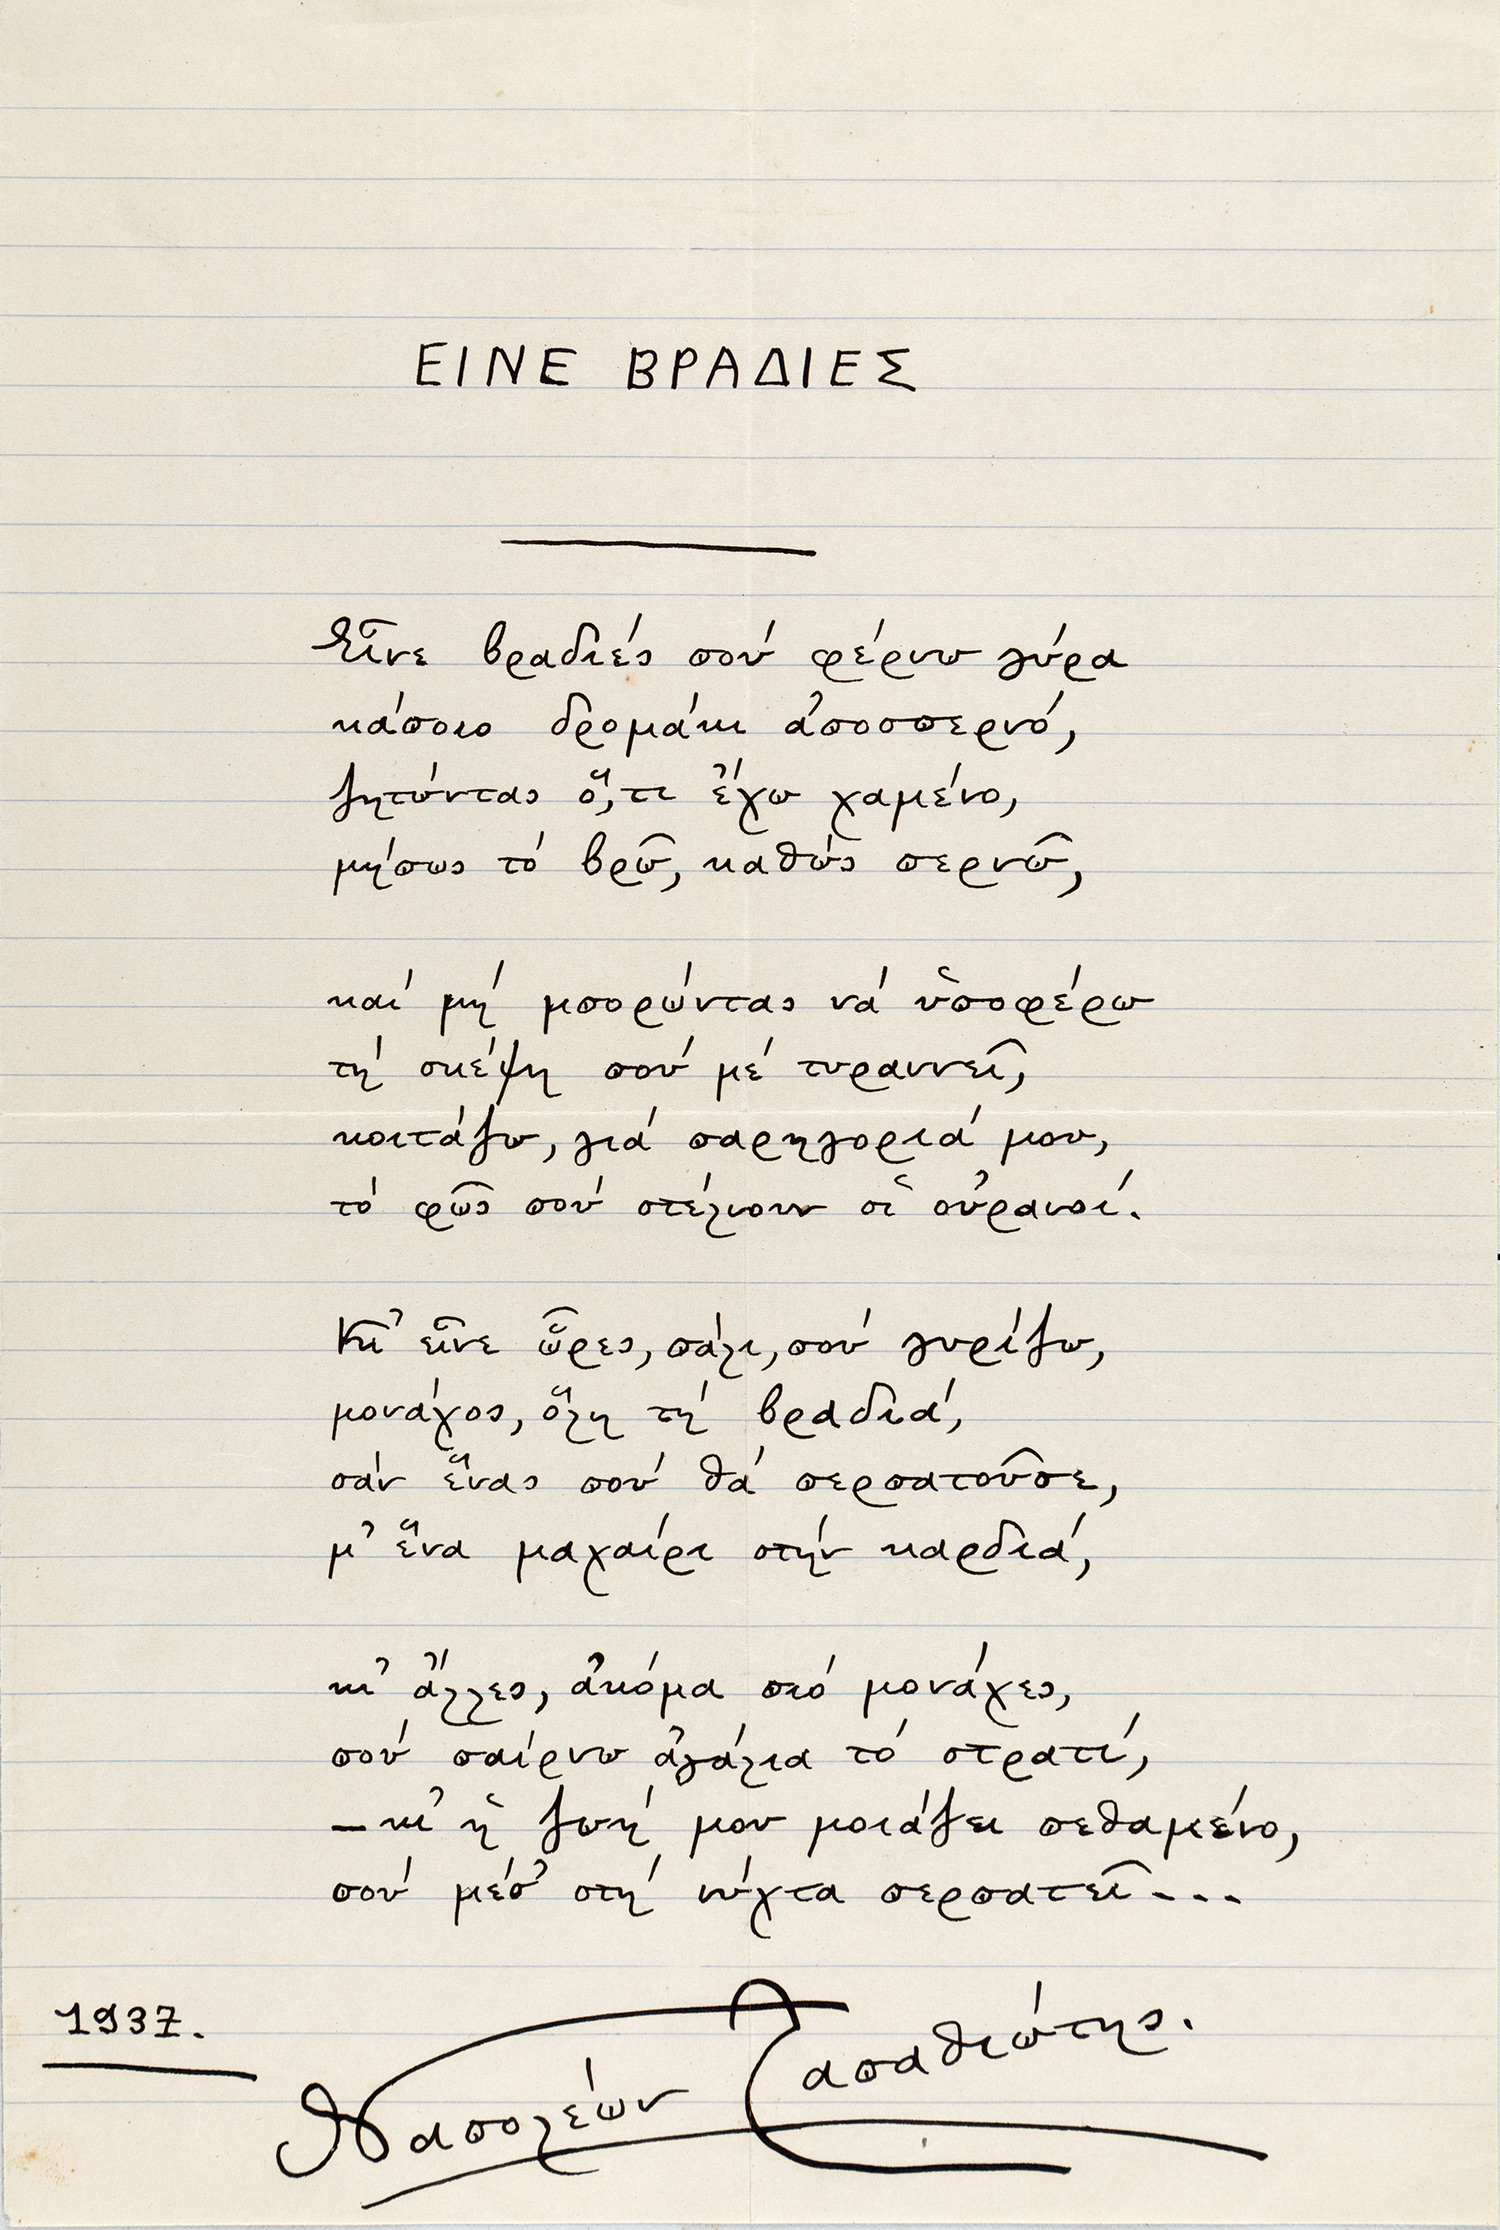 ΕΙΝΕ ΒΡΑΔΙΕΣ
Εἶνε βραδιές πού φέρνω γύρα
κάποιο δρομάκι ἀποσπερνό,
ζητώντας ὅ,τι ἔχω χαμένο,
μήπως τό βρῶ, καθώς περνῶ,
καί μή μπορώντας νά ὑποφέρω
τή σκέψη πού μέ τυραννεῖ,
κοιτάζω, γιά παρηγοριά μου,
τό φῶς πού στέλνουν οἱ οὐρανοί.
Κι᾽ εἶνε ὧρες, πάλι, πού γυρίζω,
μονάχος, ὅλη τή βραδιά,
σάν ἕνας πού θά περπατοῦσε,
μ᾽ ἕνα μαχαίρι στήν καρδιά,
κι᾽ ἄλλες, ἀκόμα πιό μονάχες,
πού παίρνω ἀγάλια τό στρατί,
–κι᾽ ἡ ζωή μου μοιάζει πεθαμένο,
πού μέσ᾽ στή νύχτα περπατεῖ...
1937.
Ναπολέων Λαπαθιώτης.